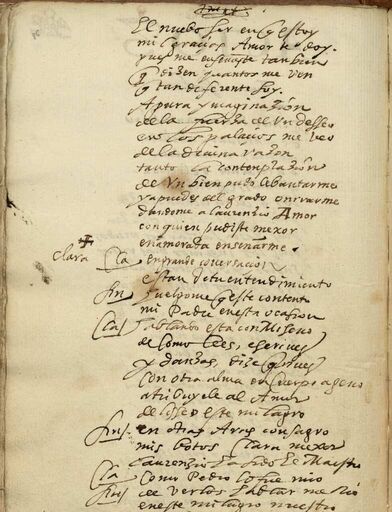 El nuebo ser en q̃ estoy
mi graçioso Amor te doy.
pues me enseñaste tanbien
q̃ dizen quantos me ven
q̃ tan diferente soy.
A pura ymaginazion
de la fuerza de un desseo
en los palacios me veo
de la diuina razon
tanto la contemplazion
de Un bien pudo lebantarme
ya puedes del grado onrrarme
dandome a laurenzio Amor
con quien pudiste mexor
enamorada enseñarme.
Clara Cla en grande conuersacion
estan de tu entendimiento
fin huelgome q̃ este contento
mi Padre en esta ocasion
Cla hablando esta con Miseno
de como lees, escriues
y danzas, dize q̃ viues
con otra alma en cuerpo ageno
atribuyele al Amor
de liseo este milagro
fin en otras Aras consagro
mis botos Clara mexor
laurenzio ha sido el Maestro
Cla como Pedro lo fue mio
fin de verlos hablar me Rio
en este milagro nuestro